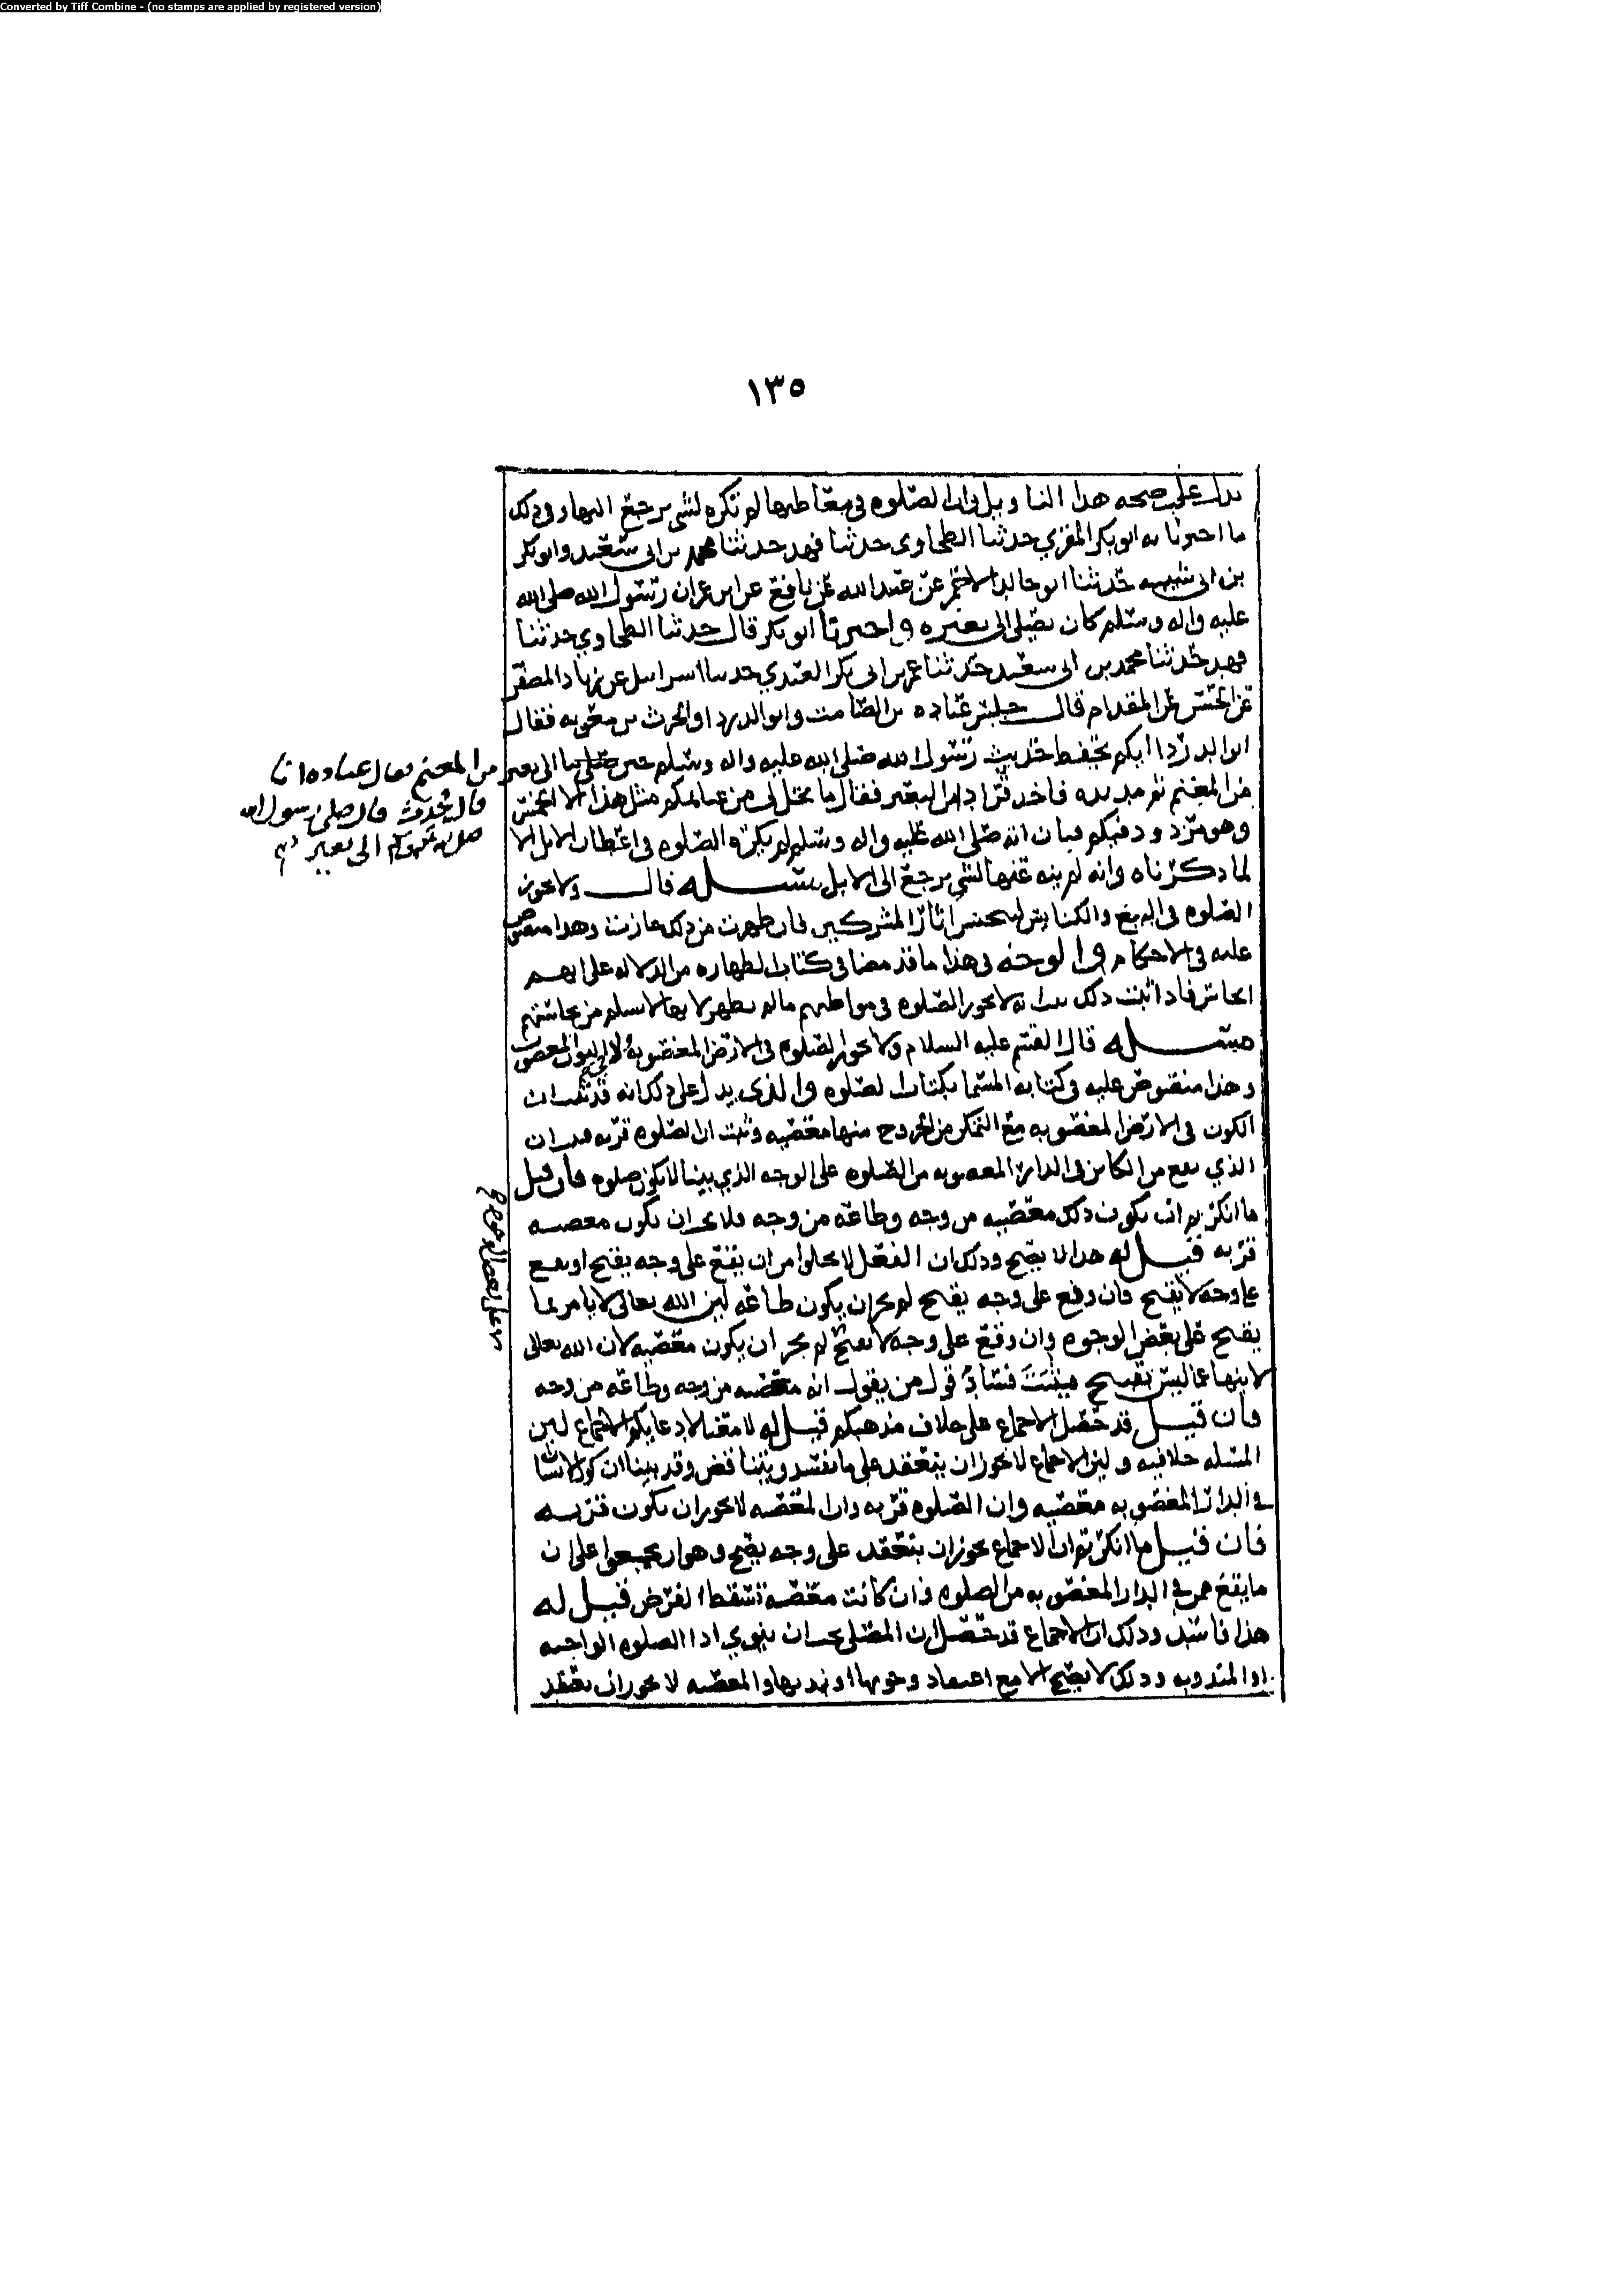 Converted by Tiff Combine - (no stamps are applied by registered version)
١٣٥
يدل على صحه هدا التاويل ان الصلوه في معاطنها لم تكره لشي يرجع اليها وفي ذلك
ما اخبرنا به ابو بكر المقري حدثنا الطحاوي حدثنا فهد حدثنا محمد بن ابي سعيد وابو بكر
بن ابي شيبه حدثنا ابو خالد الاحمر عن عبد الله عن نافع عن ابن عمر ان رسول الله صلى الله
عليه واله وسلم كان يصلي الى بعيره واخبرنا ابو بكر قال حدثنا الطحاوي حدثنا
فهد حدثنا محمد بن ابي سعيد حدثنا عمر بن ابي بكر العبدي حدسا اسرايل عن زياد المصفر
عن الحسن عن المقدام قال جلس عباده بن الصامت وابو الدرد ا والحرث بن معويه فقال
ابو الدردا ايكم يحفظ حديث رسول الله صلى الله عليه واله وسلم حين صلى بنا الى بعير من المغنم فقال عباده انا
قال يُحدّث قال صلى رسول الله
الى بعير
من المغنم ثم مد يده فاخذ قرادا من البعير فقال ما يحل لي من غنائمكم مثل هذا الا الخمس
وهو مردود فيكم فبان انه صلى الله عليه واله وسلم لم يكره الصلوه في اعطان الابل الا
لما ذكرناه وانه لم ينه عنها لشي يرجع الى الابل مسله قال ولا تجوز
الصلوه في البيع والكنايس لنجس اثار المشركين فان طهرت من ذلك جازت وهدا منصوص
عليه في الاحكام والوجه في هذا ما قد مضا في كتاب الطهاره من الدلاله على انهم
انجاس فاذا ثبت ذلك ثبت انه لا يجوز الصلوه في مواطنهم ما لم يطهر لانها لا تسلم من نجاستهم
مسله قال القسم عليه السلام ولا تجوز الصلوه في الارض المغصوبه ولا المغصوب
وهذا منصوص عليه في كتابه المسما بكتاب الصلوه والذي يدل على ذلك انه قد ثبت ان
الكون في الارض المغصوبه مع التمكن من الخروج منها معصيه وثبت ان الصلوه قربه فبان ان
الذي يقع من الكاين في الدار المغصوبه من الصلوه على الوجه الذي بينا لا يكون صلوه فان قيل
ما انكرتم ان يكون ذلك معصيه من وجه وطاعه من وجه فلا يجب ان يكون معصيه
قربه قيل له هدا لا يصح وذلك ان الفعل لا يخلوا من ان يقع على وجه يقبح او يقع
على وجه لا يقبح فان وقع على وجه يقبح لم يجز ان يكون طاعه لان الله تعالى لا يامر بما
يقبح على بعض الوجوه وان وقع على وجه لا يقبح لم يجز ان يكون معصيه لان الله تعالى
لا ينها عما ليس بقبيح فيثبت فساد قول من يقول انه معصيه من وجه وطاعه من وجه
فان قيل قد حصل الاجماع على خلاف مذهبكم قيل له لا معنا لادعايكم الاجماع لان
المسله خلافيه ولان الاجماع لا يجوز ان ينعقد على ما يفسد ويتناقض وقد بينا ان كون الانسان
في الدار المغصوبه معصيه وان الصلوه قربه وان المعصيه لا يجوز ان تكون قربه
فان قيل ما انكرتم ان الاجماع يجوز ان ينعقد على وجه يصح وهو ان يجمعوا على ان
ما يقع في الدار المغصوبه من الصلوه وان كانت معصيه تسقط الفرض قيل له
هذا فاسد وذلك ان الاجماع قد حصل ان المصلي يجب ان ينوي ادا الصلوه الواجبه
او المندوبه وذلك لا يصح الا مع اعتقاد وجوبها او ندبها والمعصيه لا يجوز ان يعتقد